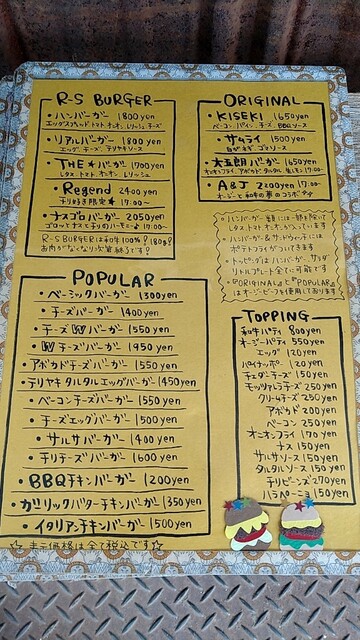 R-S BURGER
・ハンバーガー 1800yen
エッグ、スライストマト、オニオン、レリッシュ、チーズ
・リアルバーガー 1800yen
エッグ、チーズ、テリヤキソース
・THE★バーガー 1700yen
レタス、トマト、オニオン、レリッシュ
・Regend 2400yen
チリ好き限定★ 17:00〜
・ナスゴロバーガー 2050yen
ゴロっとナスと手切りのハーモニー♪ 17:00〜
R-S BURGERは和牛100%!180g!
お肉がなくなり次第終了です!
ORIGINAL
・KISEKI 1650yen
ベーコン、パイン、チーズ、BBQソース
・サムライ 1500yen
白ネギ、ゴマソース
・大五郎バーガー 1650yen
オニオンフライ、アボカド、タルタル、生ハム 17:00〜
・A&J 2200yen 17:00〜
オージーと和牛の夢のコラボ
・ハンバーガー類には一部を除いて
レタス、トマト、オニオンが入っています
・ハンバーガー&サンドウィッチには
ポテトフライがついてきます
・トッピングはハンバーガー、サラダ
リトルプレート全てに可能です
・『ORIGINAL』と『POPULAR』
はオージービーフを使用しております
POPULAR
・ベーシックバーガー 1300yen
・チーズバーガー 1400yen
・チーズWバーガー 1550yen
・Wチーズバーガー 1950yen
・アボカドチーズバーガー 1550yen
・テリヤキタルタルエッグバーガー 1450yen
・ベーコンチーズバーガー 1550yen
・チーズエッグバーガー 1500yen
・サルサバーガー 1400yen
・チリチーズバーガー 1600yen
・BBQチキンバーガー 1200yen
・ガーリックバターチキンバーガー 1350yen
・イタリアンチキンバーガー 1500yen
TOPPING
和牛パティ 800yen
オージーパティ 550yen
エッグ 120yen
パイナップル 120yen
チェダーチーズ 150yen
モッツァレラチーズ 250yen
クリームチーズ 250yen
アボカド 200yen
ベーコン 250yen
オニオンフライ 170yen
ナス 150yen
サルサソース 150yen
タルタルソース 150yen
チリビーンズ 270yen
ハラペーニョ 150yen
☆表示価格は全て税込です☆